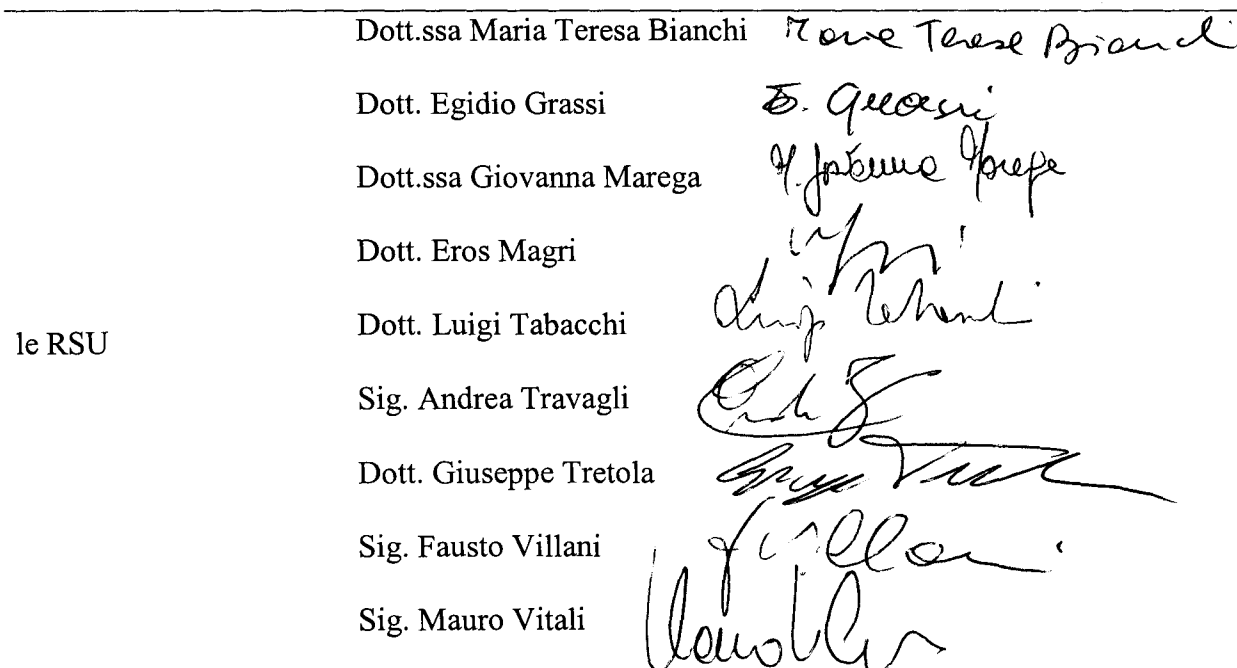 Dott.ssa Maria Teresa Bianchi Maria Teresa Bianchi
Dott. Egidio Grassi E. Grassi
Dott.ssa Giovanna Marega M. Giovanna Marega
Dott. Eros Magri
le RSU
Dott. Luigi Tabacchi Luigi Tabacchi
Sig. Andrea Travagli
Dott. Giuseppe Tretola
Sig. Fausto Villani F Villani
Sig. Mauro Vitali